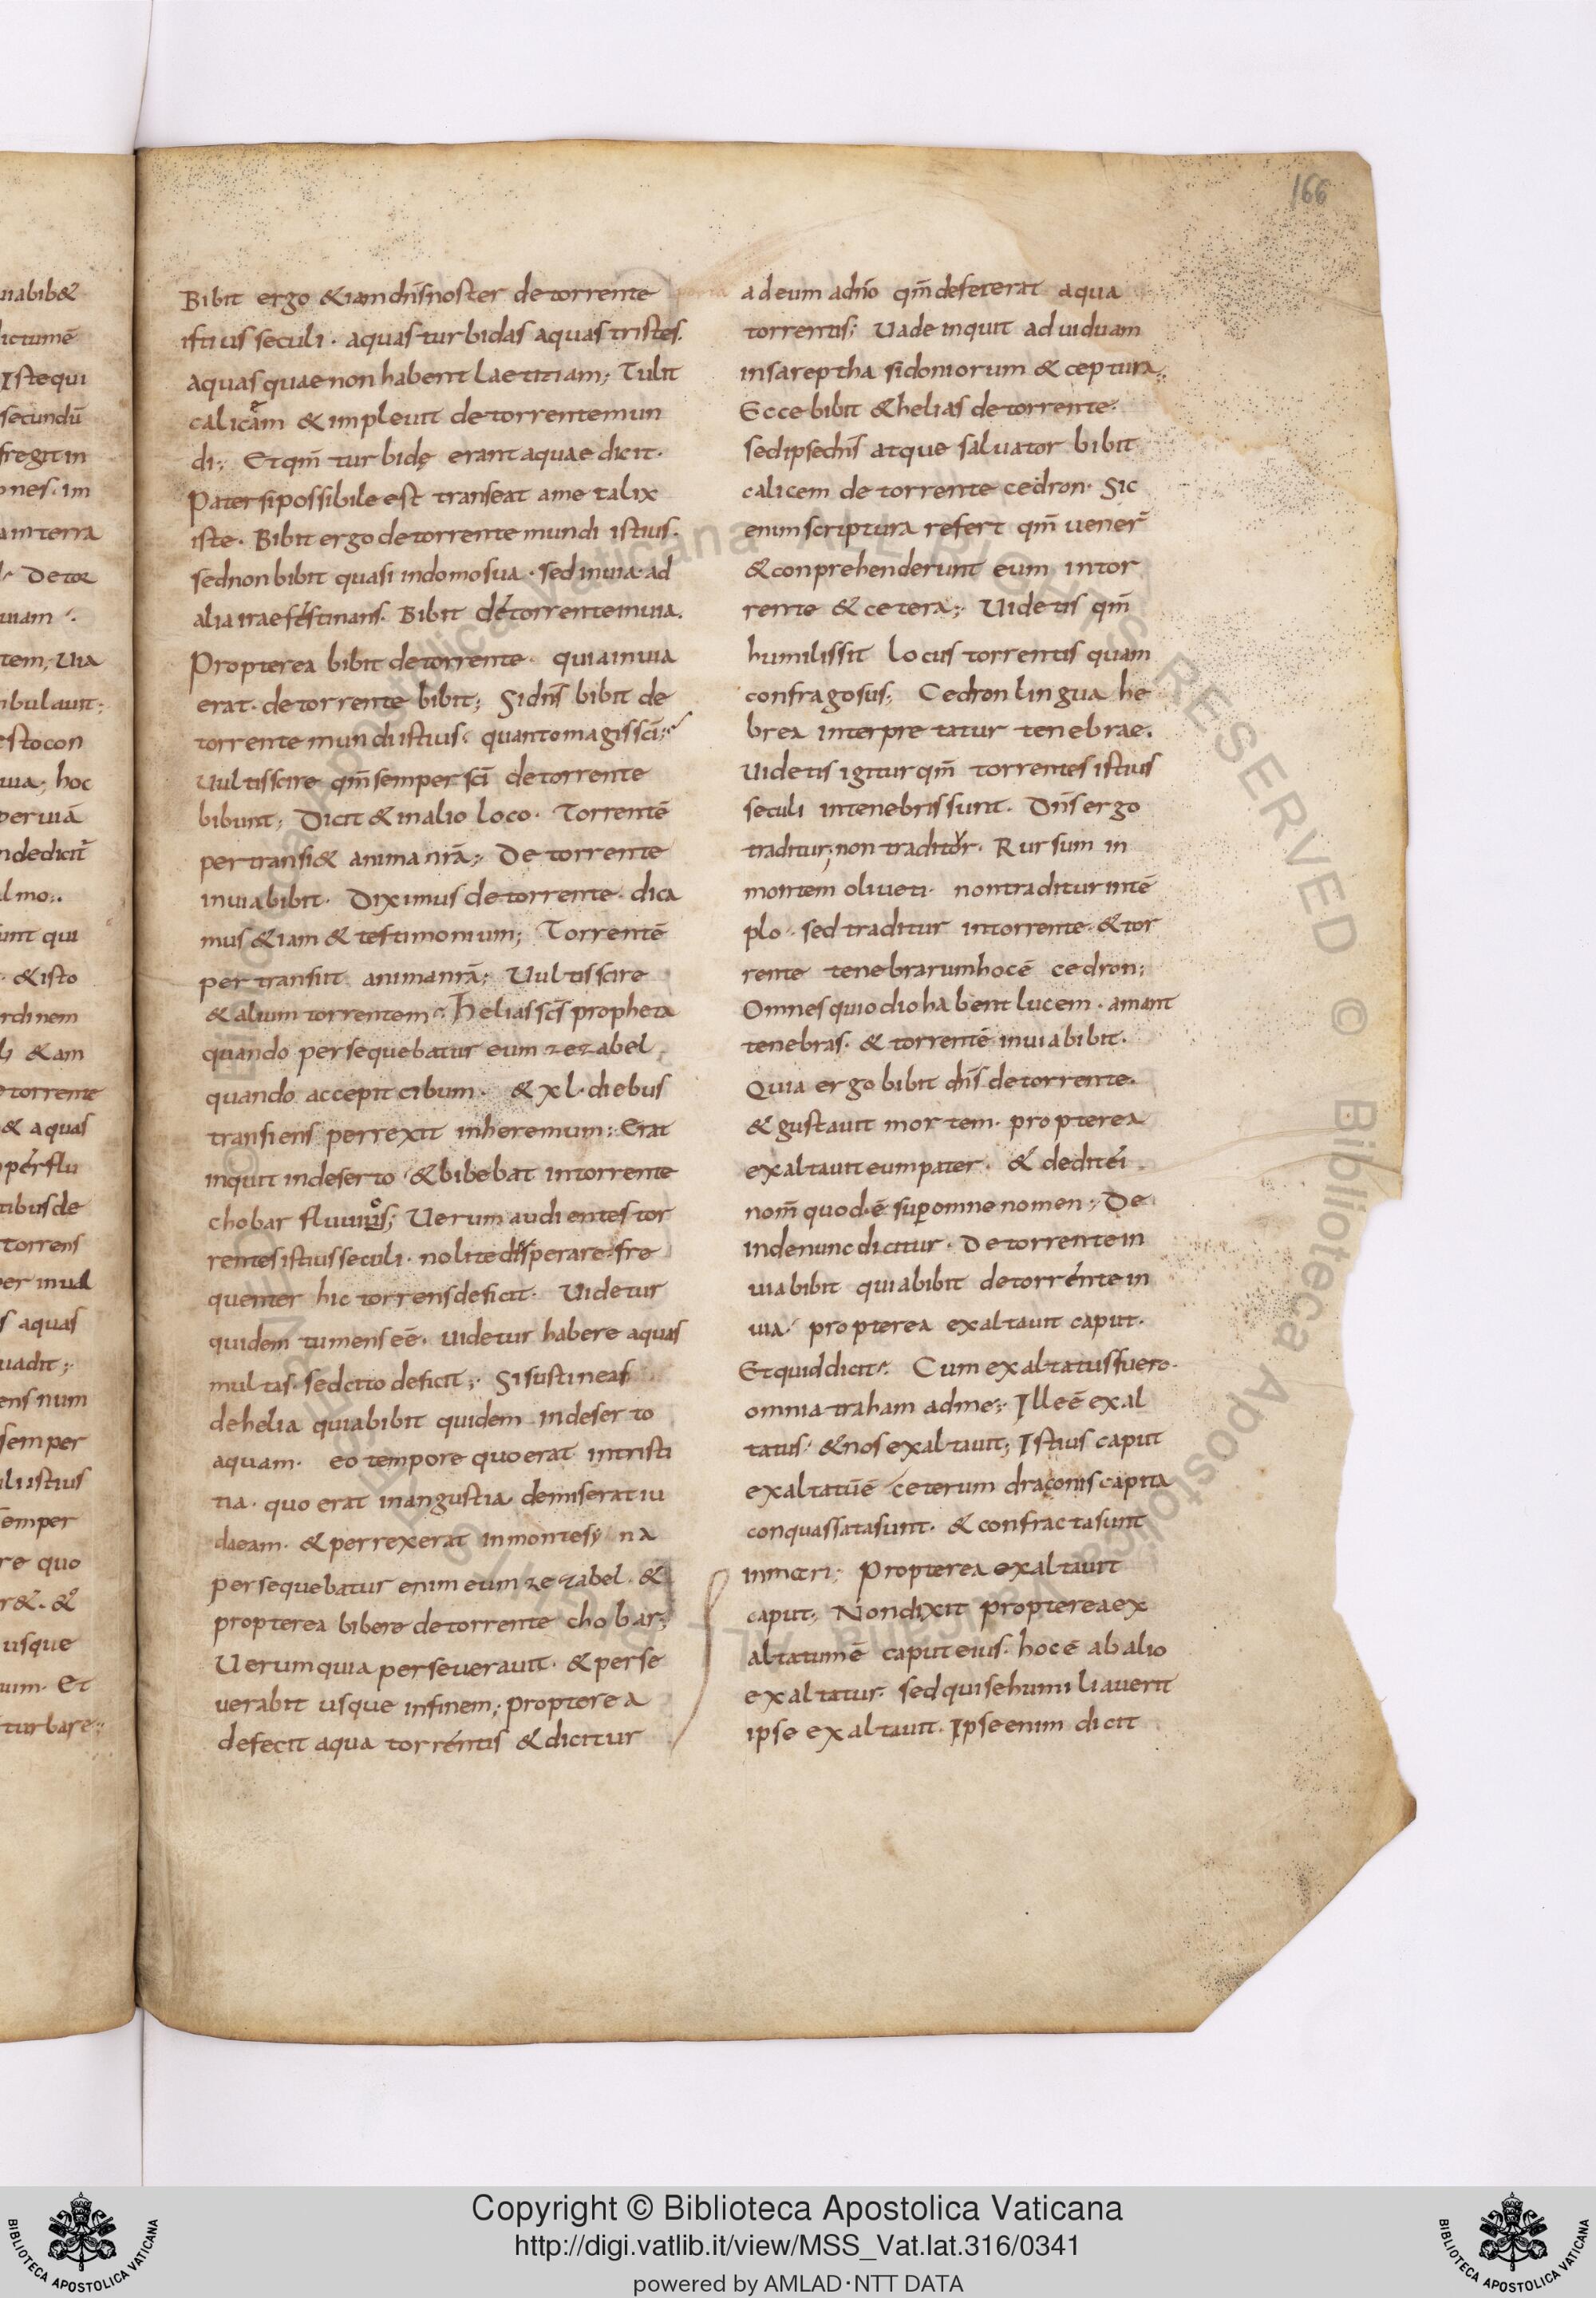 uiabib&
dictumē
Iste qui
secundū
fregit in
ones. im
a in terra
De tor
uiam
tem; Uia
ambulauit;
esto con
uia; hoc
per uiā
dedicit
almo:.
sunt qui
& isto
ordinem
& am
torrente
& aquas
perflu
tibus de
torrens
per mul
aquas
uadit;
num
semper
istius
semper
re quo
usque
Et
turbare:
166
Bibit ergo &iam dn̄s noster de torrente
istius seculi · aquas turbidas aquas tristes.
aquas quae non habent laetitiam; Tulit
calicem & impleuit de torrente mun
di; Et qm̄ turbidę erant aquae dicit·
Pater si possibile est transeat a me calix
iste · Bibit ergo de torrente mundi istius·
sed non bibit quasi in domo sua · sed in uia · ad
alia irae festinans. Bibit de torrente in uia.
Propterea bibit de torrente · quia in uia
erat · de torrente bibit; Si dn̄s bibit de
torrente mundi istius · quanto magis sc̄i;
Uultis scire qm̄ semper sc̄i de torrente
bibunt; Dicit & in alio loco · Torrentē
pertransi& anima nr̄ā; De torrente
in uia bibit · Diximus de torrente · dica
mus &iam & testimonium; Torrentē
pertransiit anima nr̄ā; Uultis scire
& alium torrentem · Helias sc̄s propheta
quando persequebatur eum zezabel
quando accepit cibum · & xl · diebus
transiens perrexit in heremum; Erat
inquit in deserto · & bibebat in torrente
chobar fluuius; Uerum audientes tor
rentes istius seculi · nolite disperare · fre
quenter hic torrens deficit · Uidetur
quidem tumens eē · uidetur habere aquas
multas · sed cito deficit; Si sustineas
de helia quia bibit quidem in deserto
aquam · eo tempore quo erat in tristi
tia · quo erat in angustia · demiserat iu
daeam · & perrexerat in monte syna
persequebatur enim eum zezabel · &
propterea bibere de torrente chobar;
Uerum quia perseuerauit · & perse
uerabit usque in finem; propterea
defecit aqua torrentis & dicitur
ad eum a dn̄o qm̄ defecerat aqua
torrentis; Uade inquit ad uiduam
in sareptha sidoniorum & ceptura;
Ecce bibit & helias de torrente·
sed ipse dn̄s atque saluator bibit
calicem de torrente cedron · Sic
enim scriptura refert qm̄ uener̄
& conprehenderunt eum in tor
rente & cetera; Uidetis qm̄
humilis sit locus torrentis quam
confragosus; Cedron lingua he
brea interpretatur tenebrae.
Uidetis igitur qm̄ torrentes istius
seculi in tenebris sunt · Dn̄s ergo
traditur; non traditor · Rursum in
montem oliueti · non traditur in tē
plo · sed traditur in torrente · & tor
rente tenebrarum hoc ē cedron;
Omnes qui odio habent lucem · amant
tenebras · & torrentē in uia bibit·
Quia ergo bibit dn̄s de torrente·
& gustauit mortem · propterea
exaltauit eum pater · & dedit ei
nom̄ quod · ē super omne nomen; De
inde nunc dicitur · De torrente in
uia bibit quia bibit de torrente in
uia · propterea exaltauit caput·
Et quid dicit · Cum exaltatus fuero·
omnia traham ad me; Ille ē exal
tatus · & nos exaltauit; Istius caput
exaltatū ē ceterum draconis capita
conquassata sunt · & confracta sunt
in mari; Propterea exaltauit
caput; Non dixit propterea ex
altatum ē caput eius · hoc ē ab alio
exaltatur · sed qui se humiliauerit
ipse exaltauit · Ipse enim dicit
Copyright © Biblioteca Apostolica Vaticana
http://digi.vatlib.it/view/MSS_Vat.lat.316/0341
powered by AMLAD·NTT DATA
BIBLIOTECA APOSTOLICA VATICANA
BIBLIOTECA APOSTOLICA VATICANA